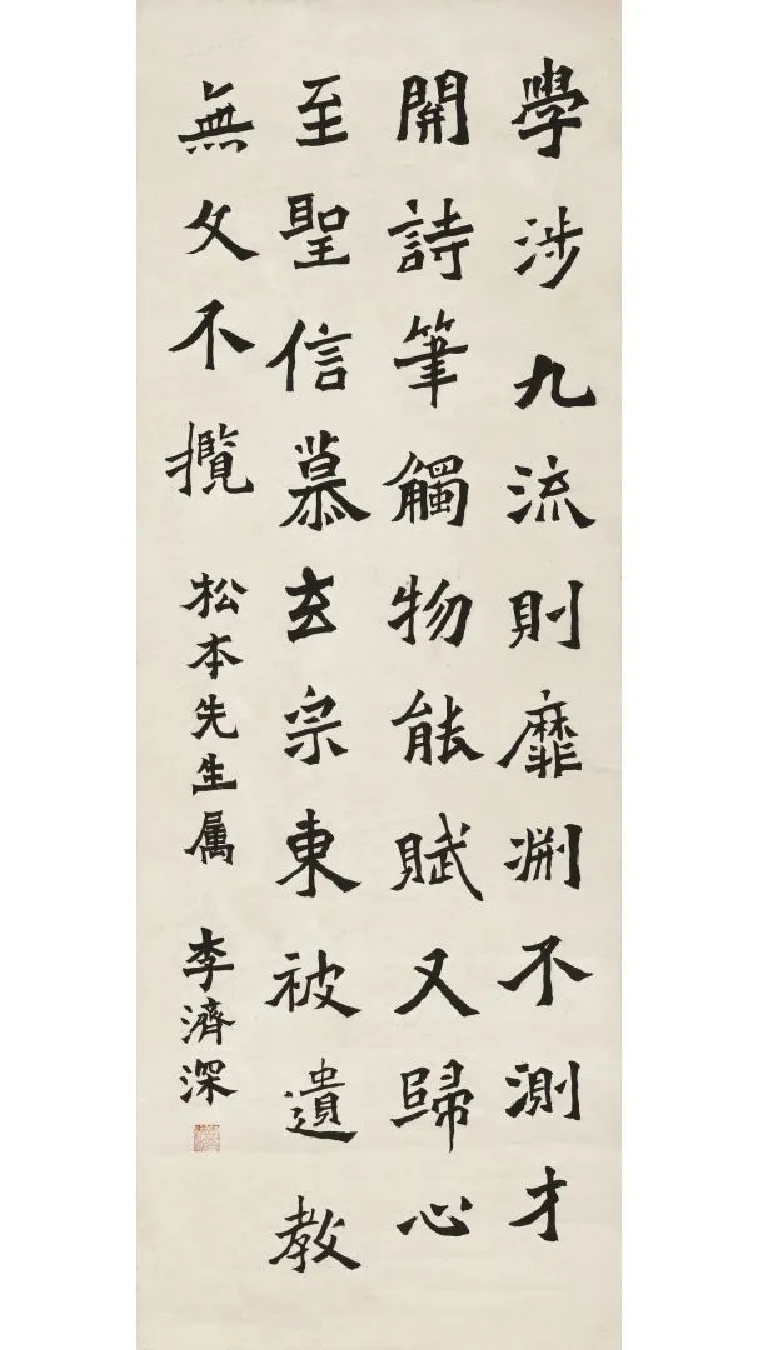 學涉九流則靡淵不測才
開詩筆觸物能賦又歸心
至聖信慕玄宗東被遺教
無文不攬
松本先生属
李濟深